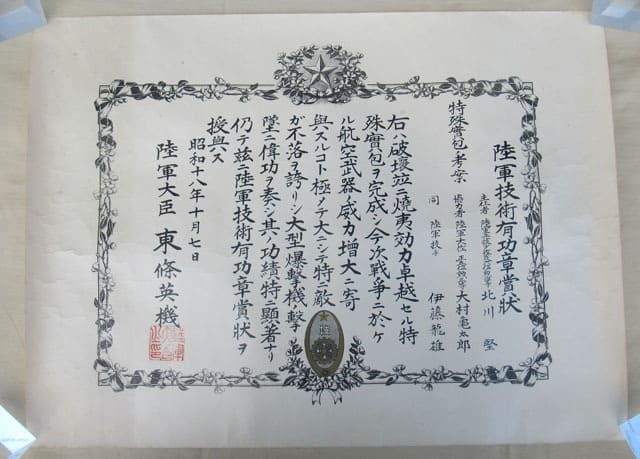 陸軍技術有功章賞状
特殊實包ノ考案
北川 堅
協力者 陸軍大佐 大村亀太郎
同 陸軍技手 伊藤龍雄
右ハ破壊竝ニ燒夷効力卓越セル特
殊實包ヲ完成シ今次戰爭ニ於ケ
ル航空武器ノ威力増大ニ寄
與スルコト極メテ大ニシテ特ニ敵
ガ不落ヲ誇リシ大型爆撃機撃
墜ニ偉功ヲ奏シ其ノ功績特ニ顯著ナリ
仍テ茲ニ陸軍技術有功章賞状ヲ
授與ス
昭和十八年十月七日
陸軍大臣 東條英機